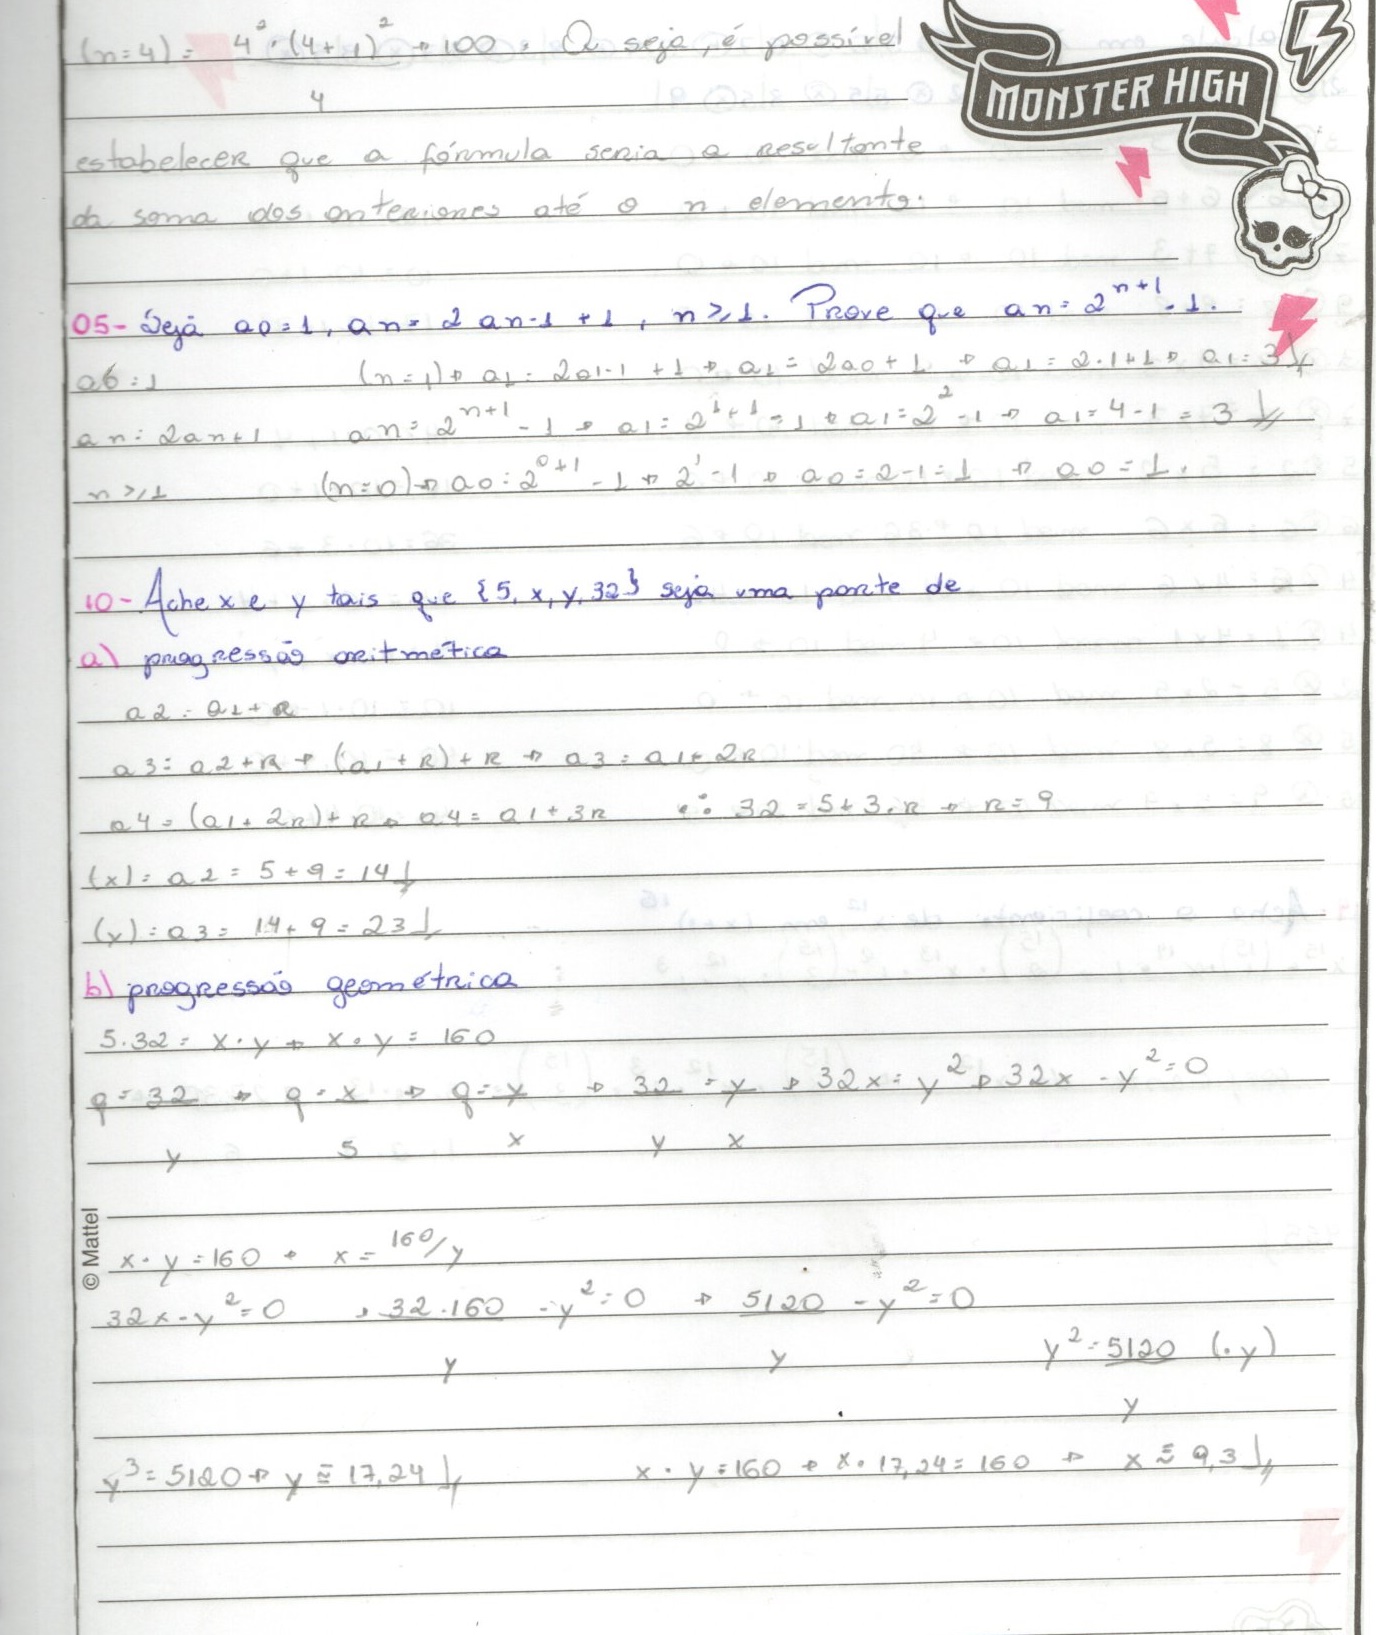 (n=4) = 4²·(4+1)² → 100. Ou seja, é possível
4
MONSTER HIGH
estabelecer que a fórmula seria a resultante
da soma dos anteriores até o n elemento.
05- Seja a0=1, an= 2 an-1 +1, n≥1. Prove que an= 2^(n+1) -1.
a0=1 (n=1)→ a1= 2a1-1 +1 → a1= 2a0+1 → a1= 2.1+1→ a1=3
an= 2an+1 an= 2^(n+1) -1 → a1= 2^(1+1) -1 → a1=2² -1 → a1= 4-1 = 3
n≥1 (n=0)→ a0= 2^(0+1) -1 → 2¹-1 → a0= 2-1=1 → a0=1.
10- Ache x e y tais que {5, x, y, 32} seja uma parte de
a) progressão aritmética
a2= a1+R
a3= a2+R → (a1+R)+R → a3= a1+2R
a4= (a1+2R)+R → a4= a1+3R ∴ 32=5+3.R → R=9
(x)= a2= 5+9= 14
(y)= a3= 14+9=23
b) progressão geométrica
5.32= x·y → x·y= 160
q= 32 → q= x → q= y → 32 = y → 32x= y² → 32x - y²=0
y 5 x y x
© Mattel
x·y=160 → x= 160/y
32x-y²=0 → 32.160 -y²=0 → 5120 -y²=0
y y y²= 5120 (·y)
y
y³=5120 → y ≅ 17,24 x·y=160 → x·17,24=160 → x ≅ 9,3